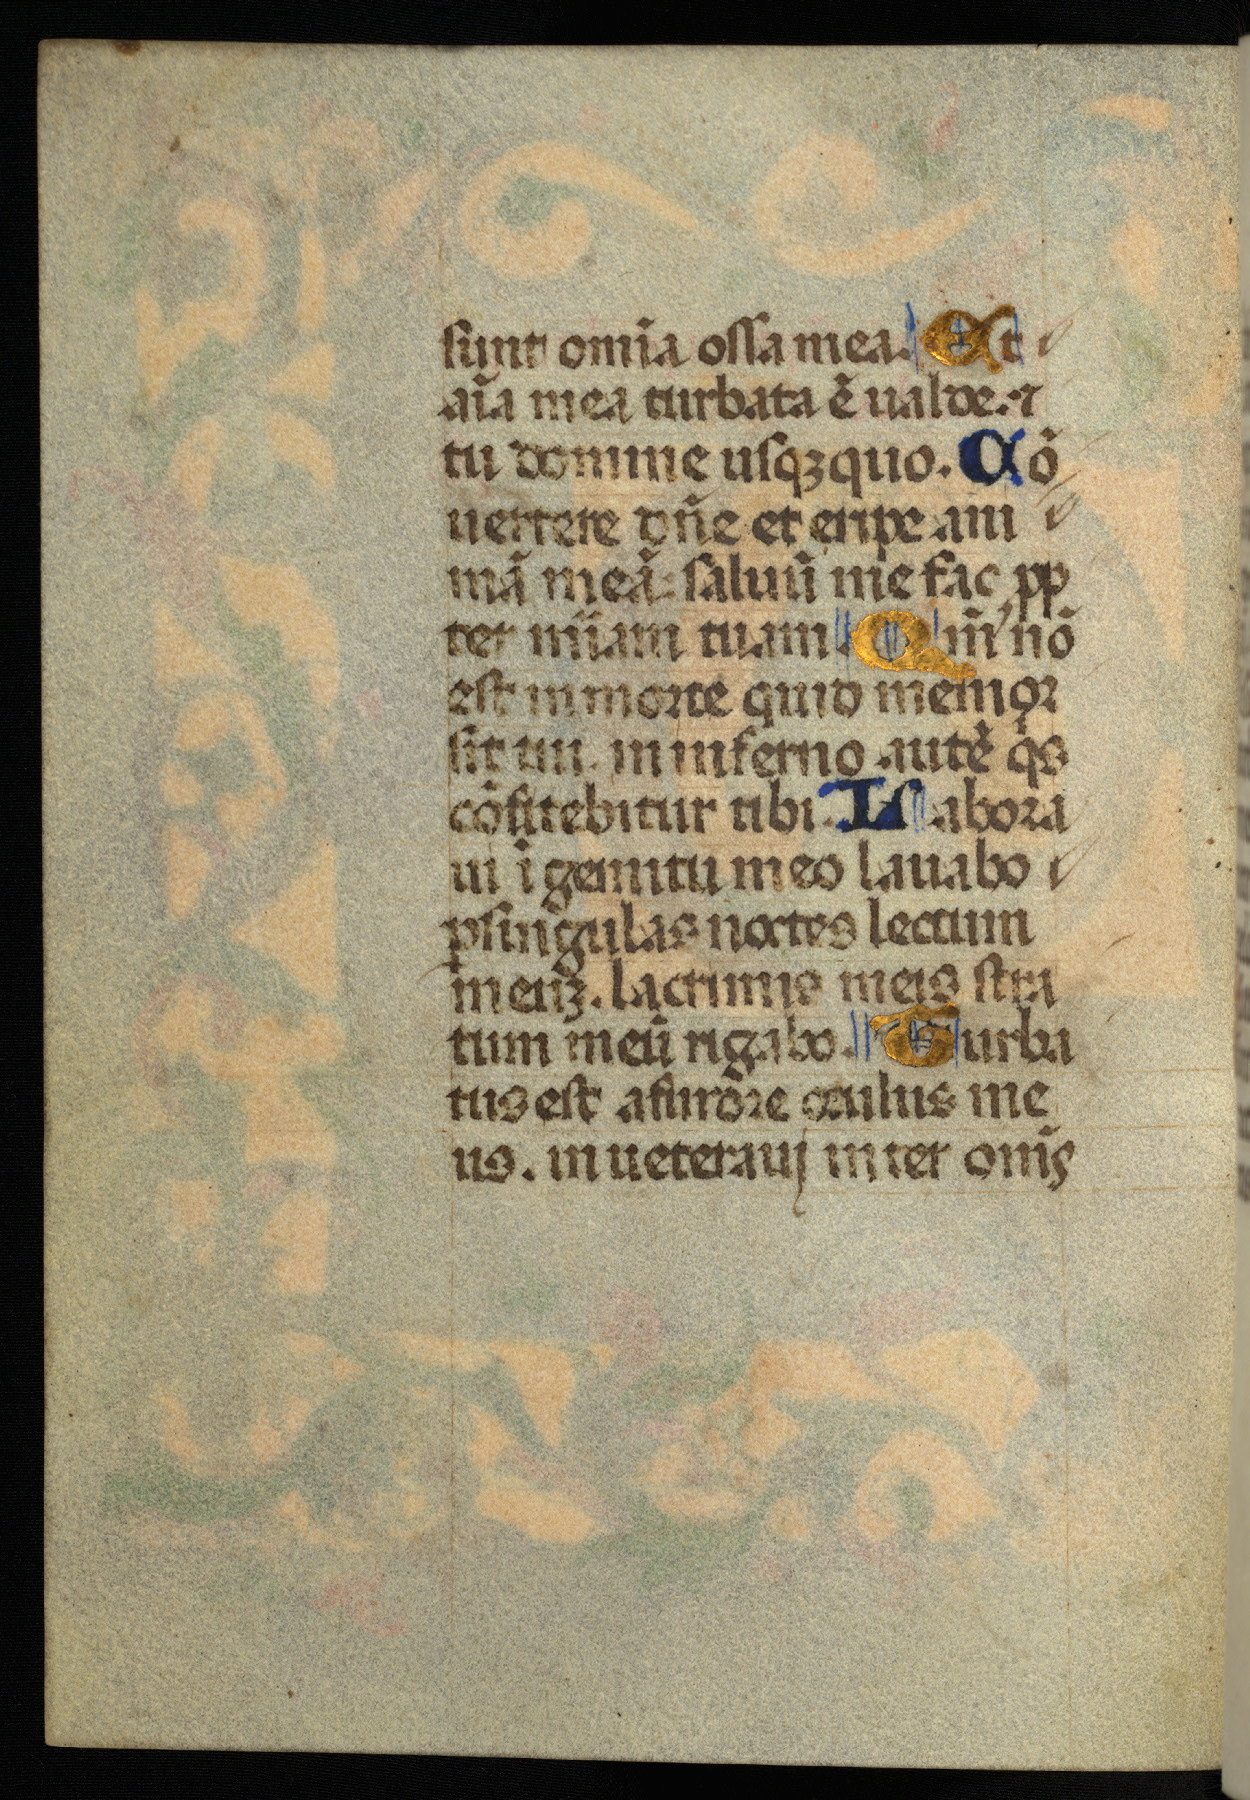 sunt om̃ia ossa mea. Et
aĩa mea turbata ẽ ualde. ⁊
tu domine usqꝫquo. Cõ
uertere dñe et eripe ani
mã meã: saluũ me fac ꝓp
ter mĩam tuam. Qm̃ nõ
est in morte qui memor
sit tui. in inferno autẽ qͥs
cõfitebitur tibi. Labora
ui ĩ gemitu meo lauabo
ꝑ singulas noctes lectum
meuꝫ. lacrimis meis stra
tum meũ rigabo. Turba
tus est a furore oculus me
us. in ueteraui inter om̃s